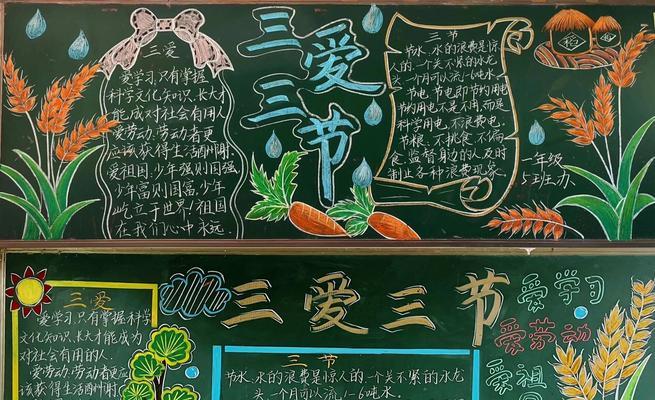 三爱
爱学习,只有掌握
科学文化知识,长大才
能成对社会有用人
爱劳动,劳动者更
应该获得生活酬谢.
爱祖国,少年强则国强
少年富则国富,少年
屹立于世界!祖国
在我们心中永远.
三爱
三节
三节
节水、水的浪费是惊
人的.一个关不紧的水龙
头一个月可以流1-6吨水
节电、节电即节约用电
节约用电不是不用,而是
科学用电,不浪费电.
节粮、不挑食、不偏
食,监督身边的人及时
制止各种浪费现象.
一年级
5班办
三爱三节
三爱
爱学习,只有掌握科学
文化知识,长大才能成为
对社会有用的人.
爱劳动,劳动者更应
该获得生活酬谢
三节
节水、水的浪费是惊人的.一个关不紧的水龙
头,一个月可以流1-6吨水.
爱学习
爱劳动
爱祖